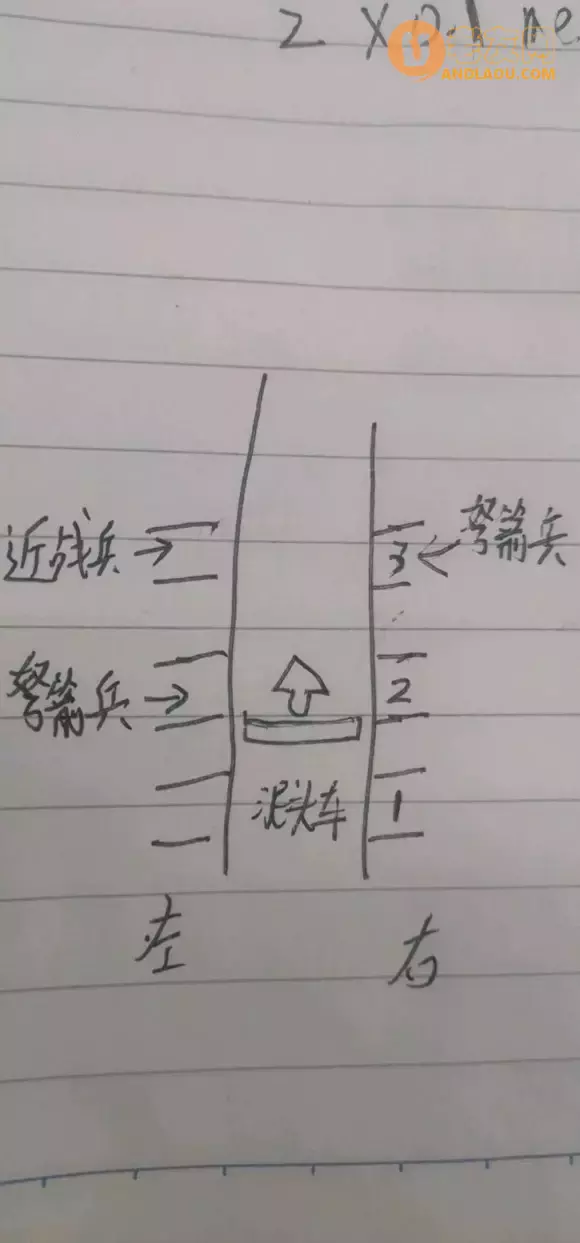 2 x
ANGLADU.COM
近战兵→
3←弩箭兵
弩箭兵→
2
泥头车
1
左
右